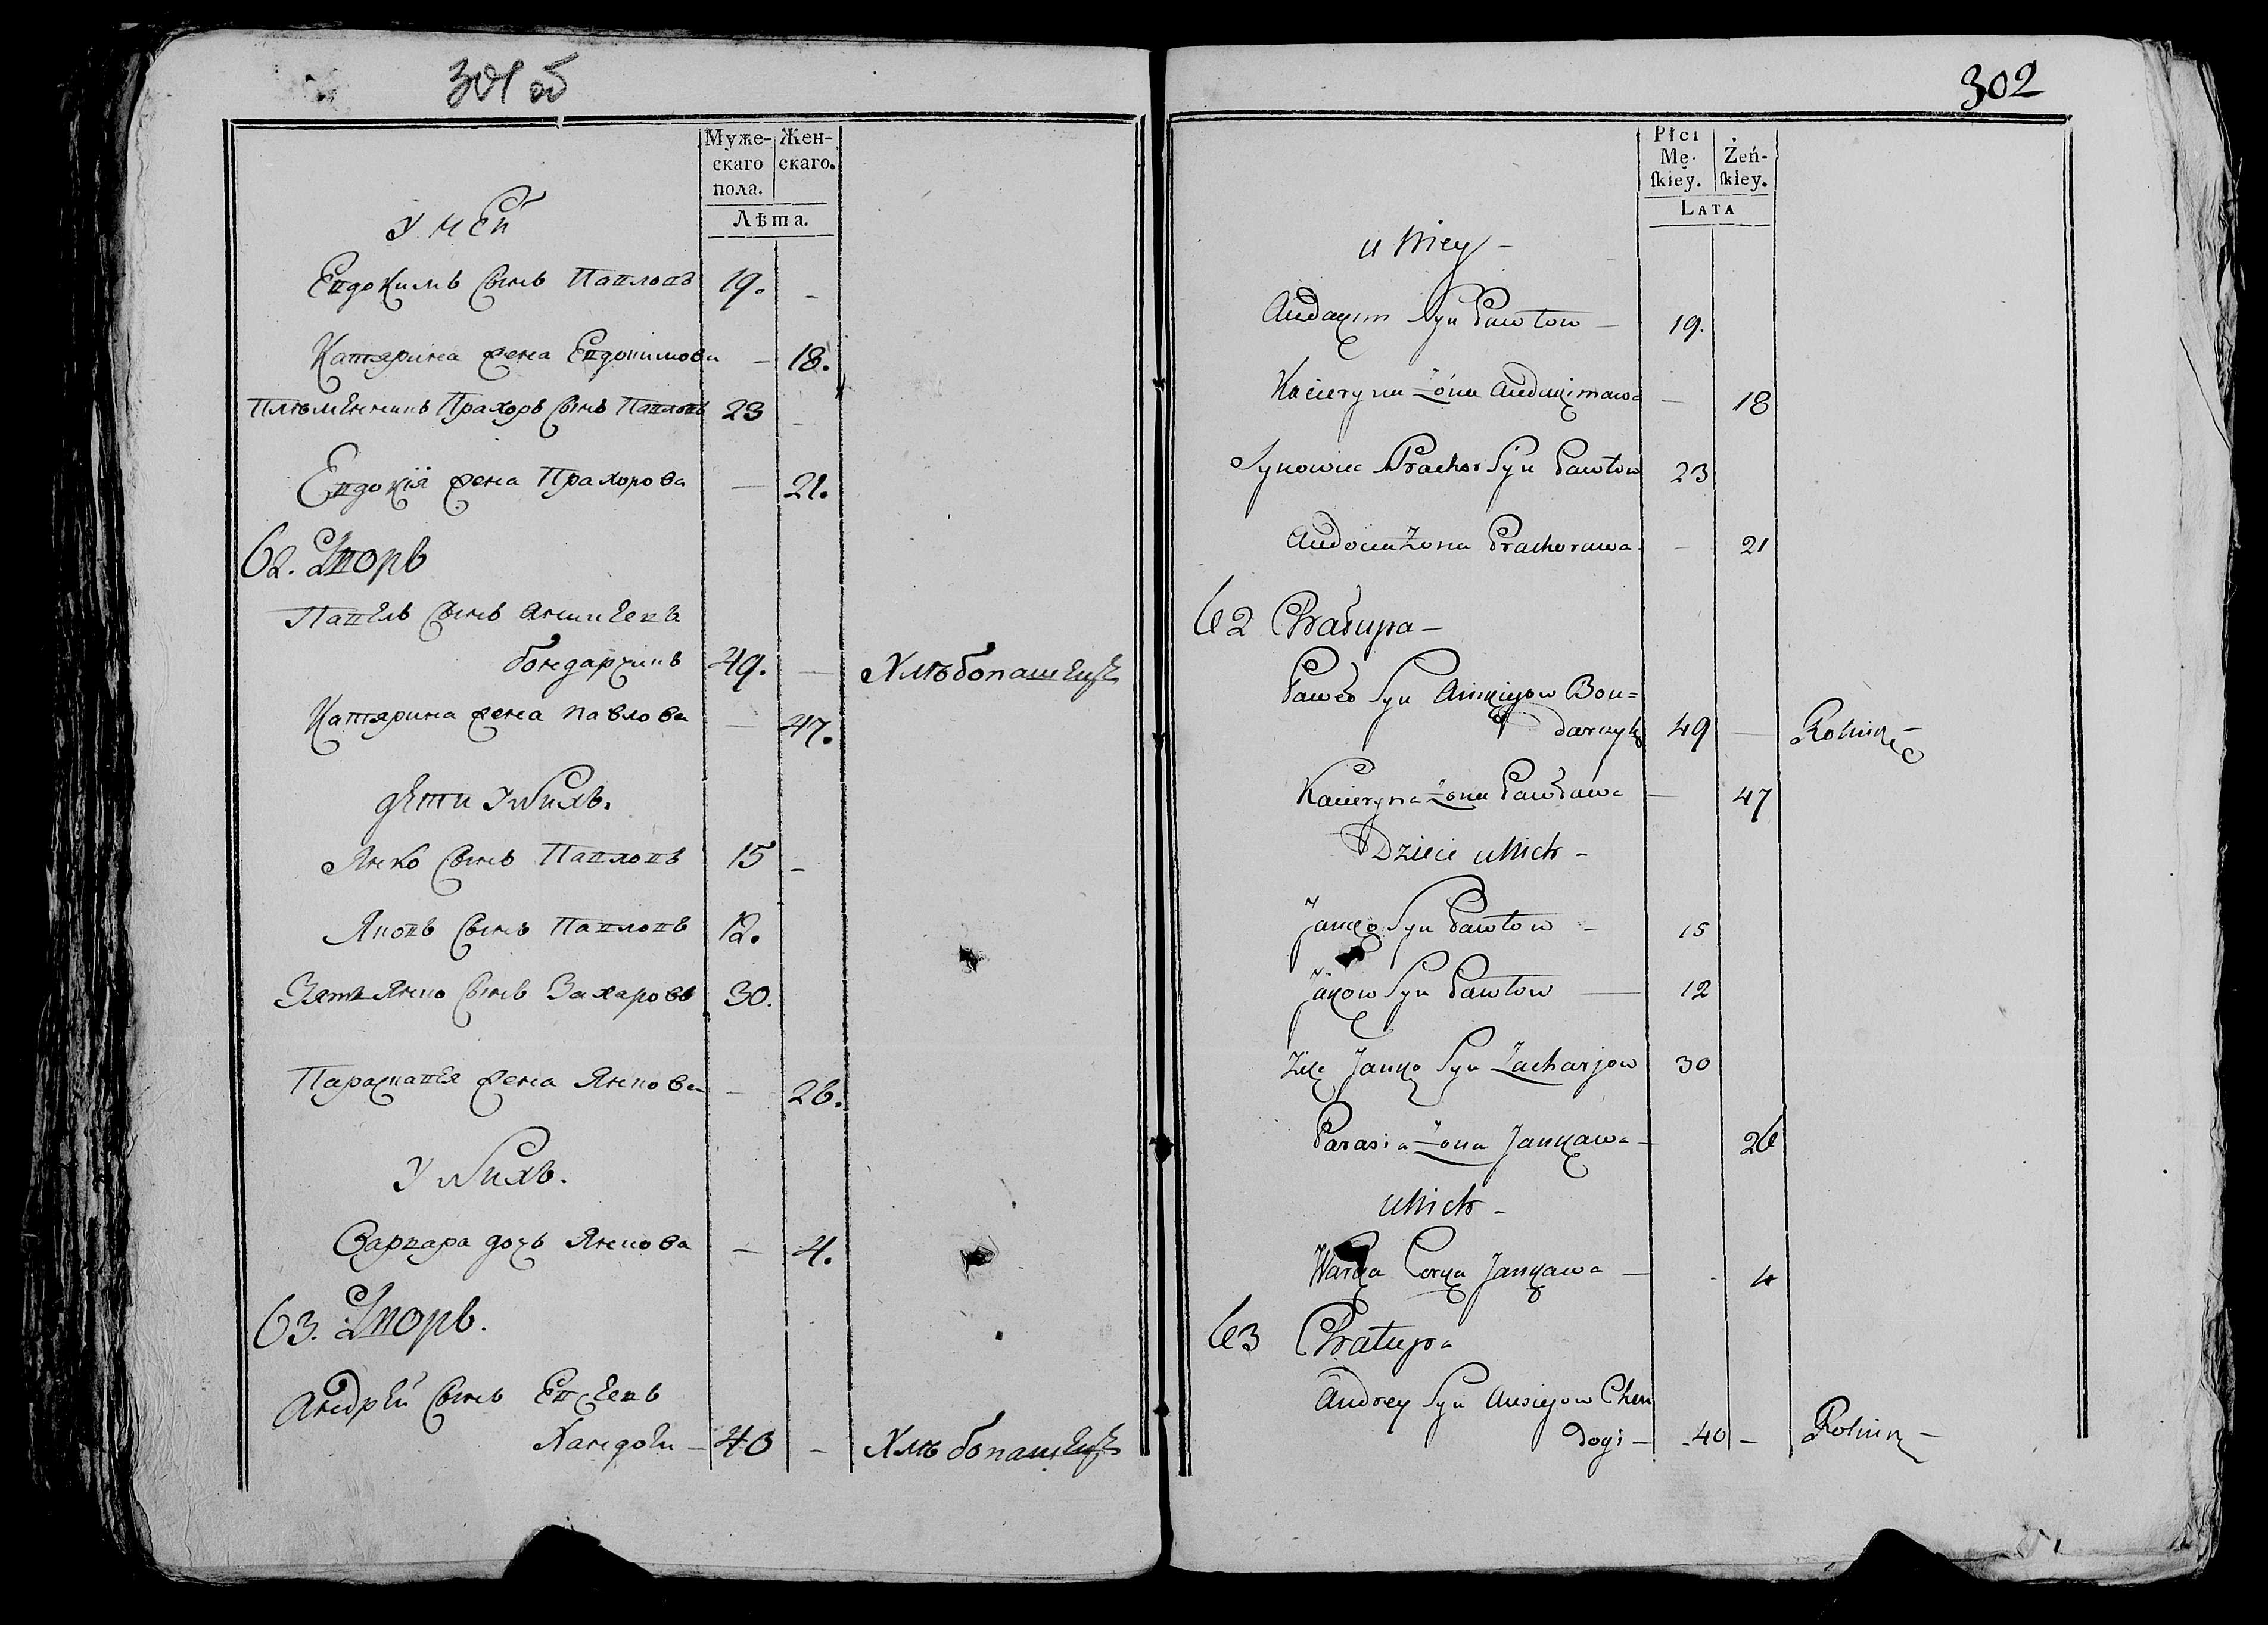 301 об
Муже-
скаго
пола.
Жен-
скаго.
Лѣта.
У ней
Евдокимъ Сынъ Павловъ 19. -
Катярина жена Евдокимова - 18.
Племянникъ Прахоръ Сынъ Павловъ 23 -
Евдокія жена Прахорова - 21.
62. Дворъ
Павелъ Сынъ
бондарчикъ 49. - Хлѣбопашецъ
Катярина жена Павлова - 47.
дѣти у Nихъ.
Янко Сынъ Павловъ 15 -
Яковъ Сынъ Павловъ 12.
Зять Янко Сынъ Захаровъ 30.
жена Янкова - 26.
У Nихъ.
Варвара дочь Янкова - 4.
63. Дворъ.
Андрей Сынъ
40 - Хлѣбопашецъ
302
Płci
Mę-
skiey.
Żeń-
skiey.
Lata
u Niey -
Audakim Syn Pawłow - 19.
Kacieryna Żona Audakimawa - 18
Synowiec Prachor Syn Pawłow 23
Audocia Żona Prachorawa - 21
62 Chałupa -
Paweł Syn Bon=
darczyk 49 - Rolnik -
Kacieryna Żona Pawława - 47
Dzieci u Nich -
Janko Syn Pawłow - 15
Jakow Syn Pawłow - 12
Zięć Janko Syn Zacharjow 30
Parasia Żona Jankawa - 26
u Nich -
Warka Corka Jankawa - - 4
63 Chałupa
Andrey Syn Chen
dogi - 40 - Rolnik -